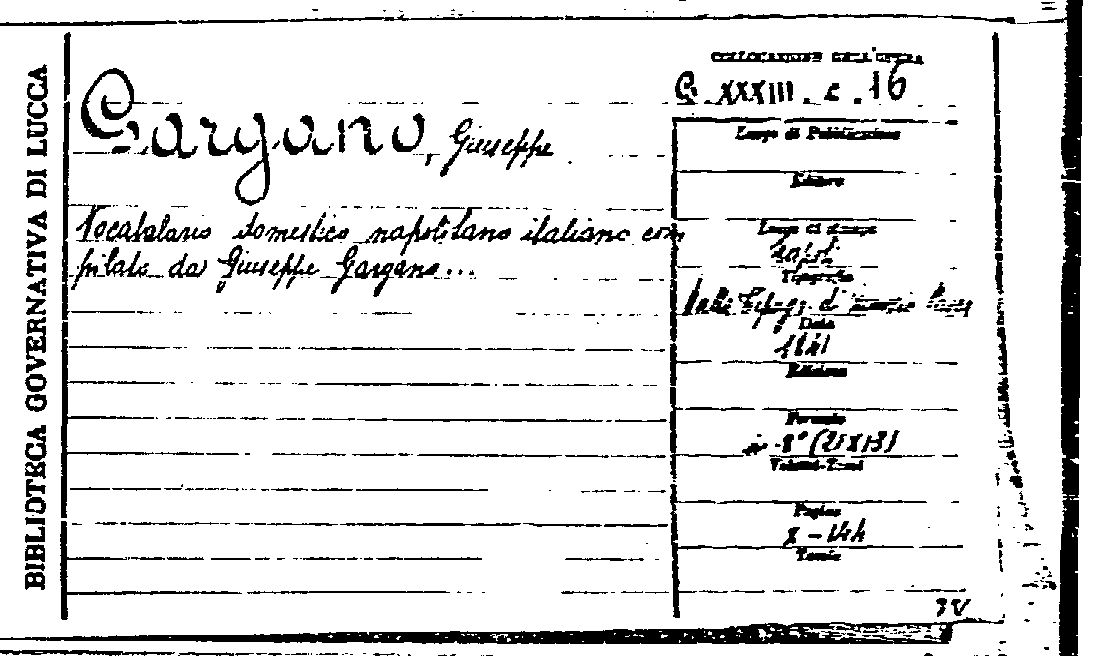 BIBLIOTECA GOVERNATIVA DI LUCCA
COLLOCAZIONE DELL'OPERA
G. XXXIII. c. 16
Gargano, Giuseppe
Vocabolario domestico napolitano italiano com
pilato da Giuseppe Gargano...
Luogo di Pubblicazione
Editore
Luogo di stampa
Napoli
Tipografia
Dalla Tipogr. di
Data
1841
Edizione
Formato
in-8° (21X13)
Volumi-Tomi
Pagine
Tavole